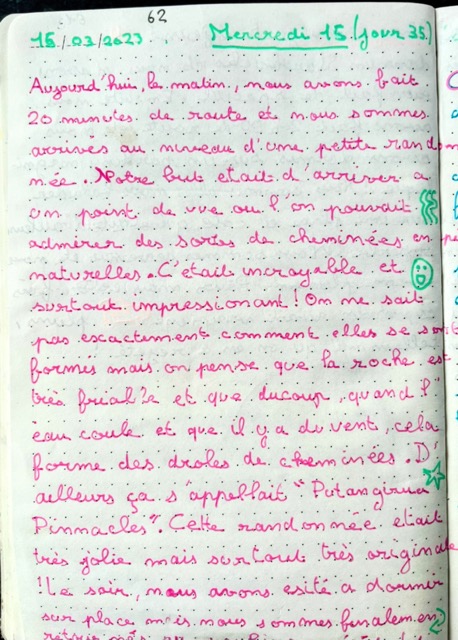 62
15/03/2023 Mercredi 15 (jour 35)
Aujourd'hui, le matin, nous avons fait
20 minutes de route et nous sommes
arrivés au niveau d'une petite rando
née. Notre but etait d'arriver a
un point de vue ou l'on pouvait
admirer des sortes de cheminées en
naturelles. C'était incroyable et
surtout impressionant ! On ne sait
pas exactement comment elles se sont
formés mais on pense que la roche est
très friable et que ducoup, quand l'
eau coule et que il y a du vent, cela
forme des droles de cheminées. D'
ailleurs ça s'appellait "Putangirua
Pinnacles". Cette randonnée etait
très jolie mais surtout très originale
! Le soir, nous avons esité a dormir
sur place mais nous sommes finalemen